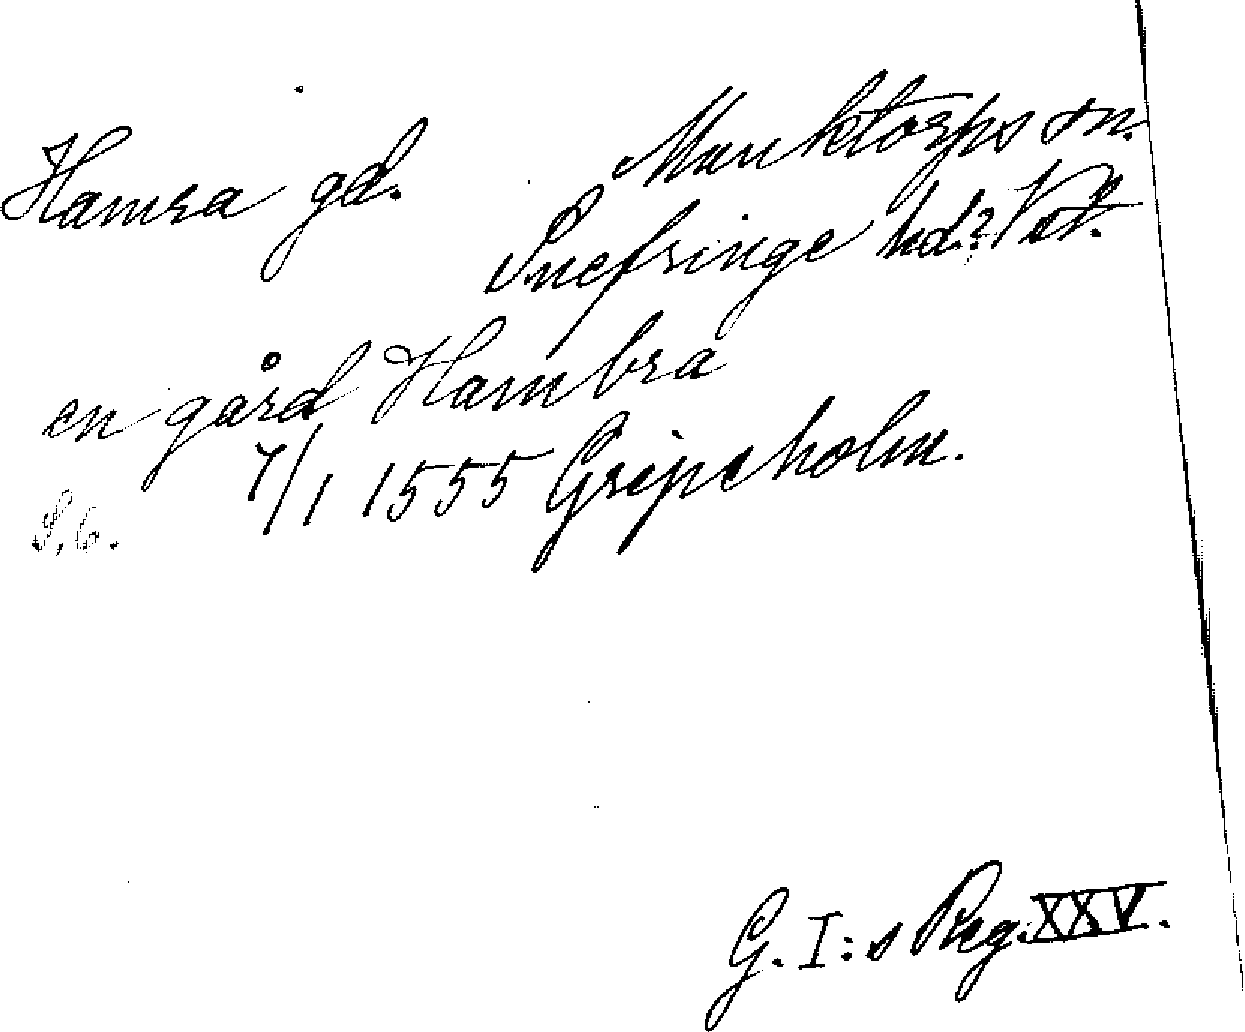 Hamra gd. Munktorps sn.
Snefringe hd? Vstm.
en gård Hambra
7/1 1555 Gripsholm.
S. 6.
G. I:s Reg. XXV.